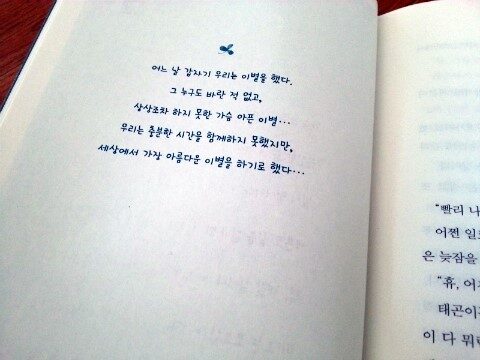 어느 날 갑자기 우리는 이별을 했다.
그 누구도 바란 적 없고,
상상조차 하지 못한 가슴 아픈 이별...
우리는 충분한 시간을 함께하지 못했지만,
세상에서 가장 아름다운 이별을 하기로 했다...
“빨리 나
어쩐 일로
은 늦잠을
“휴, 어
태곤이
이 다 뭐